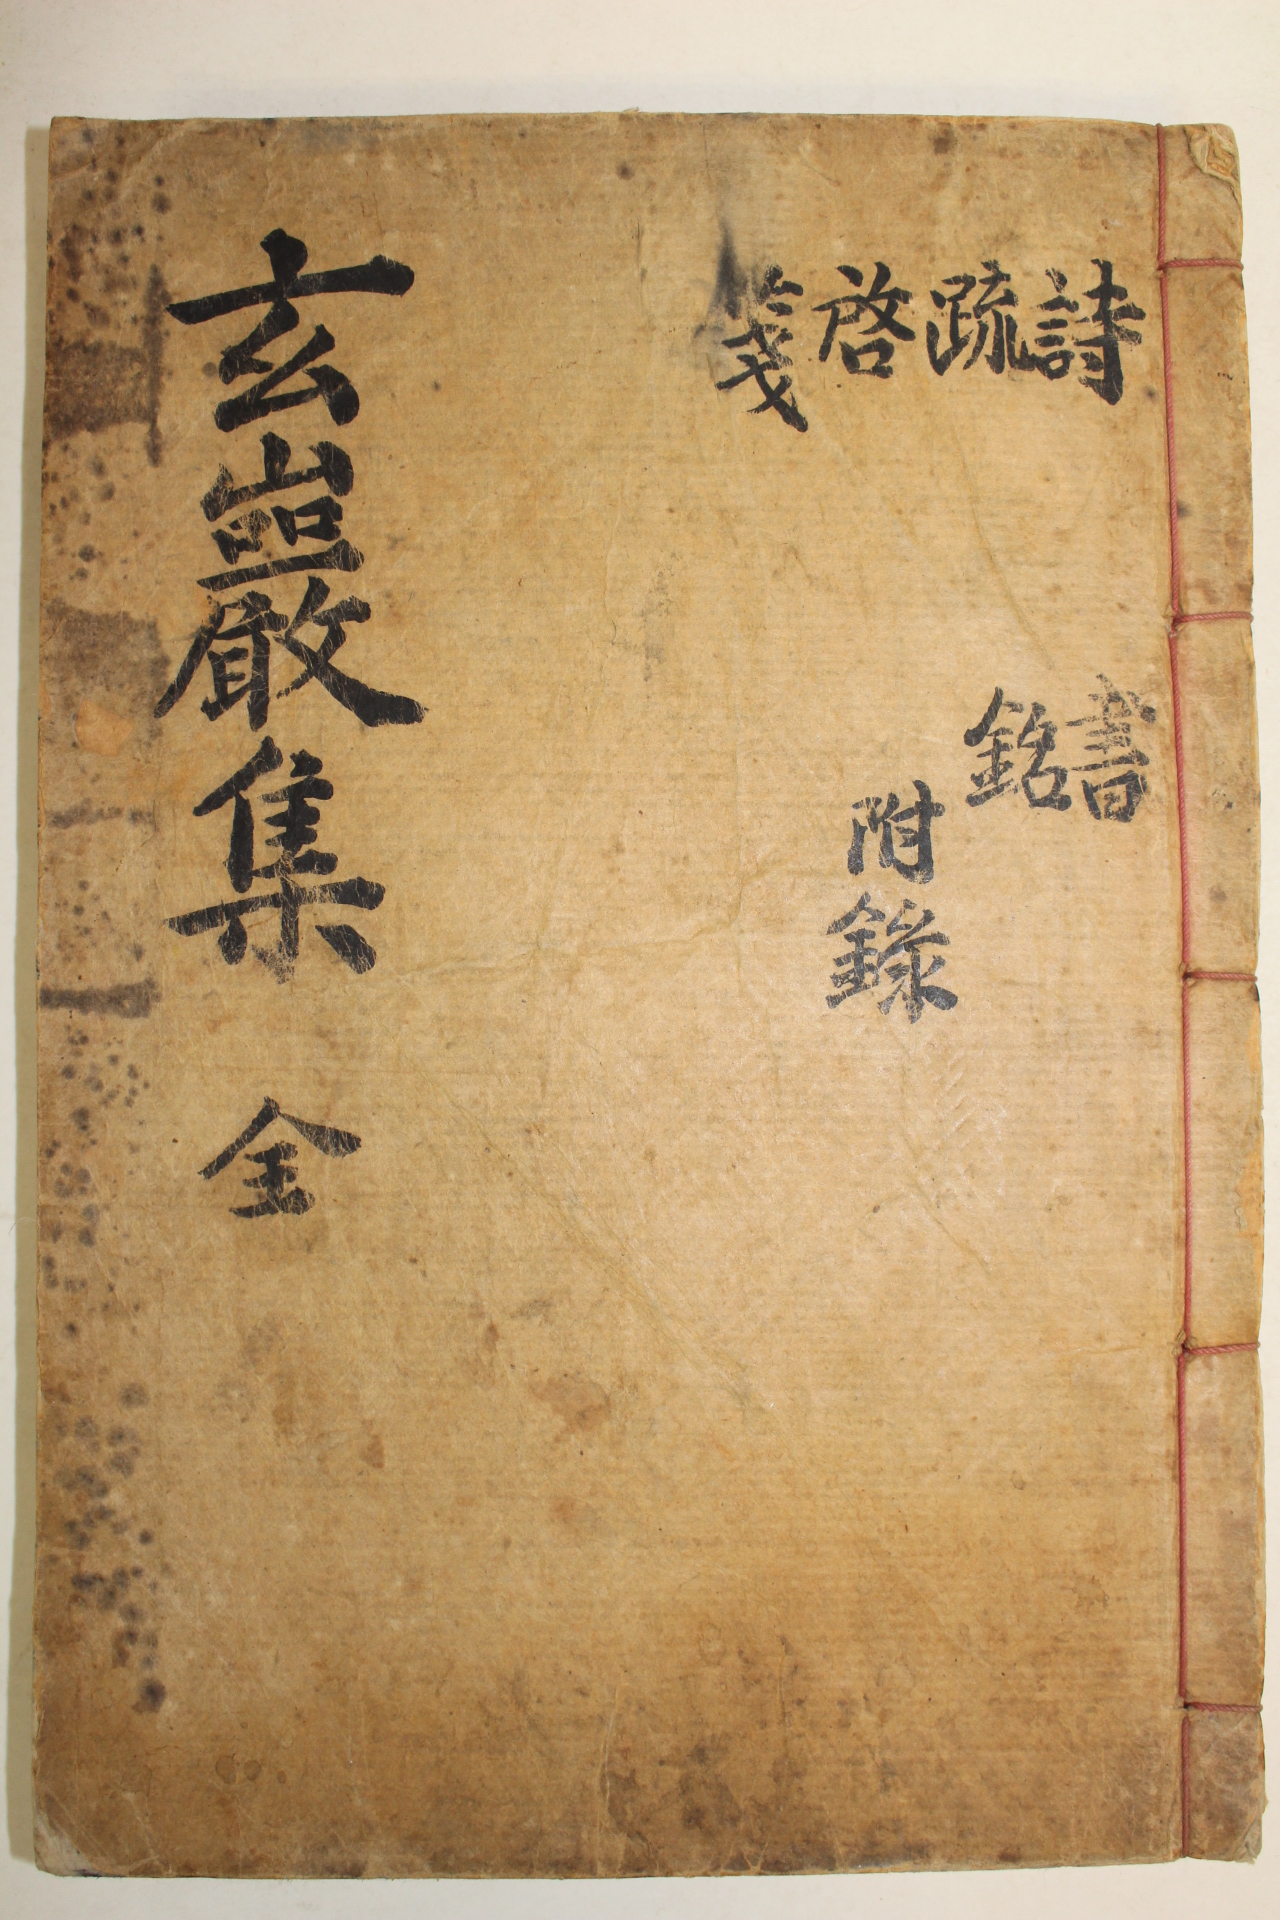 詩疏啓箋
書銘
附錄
玄巖集 全